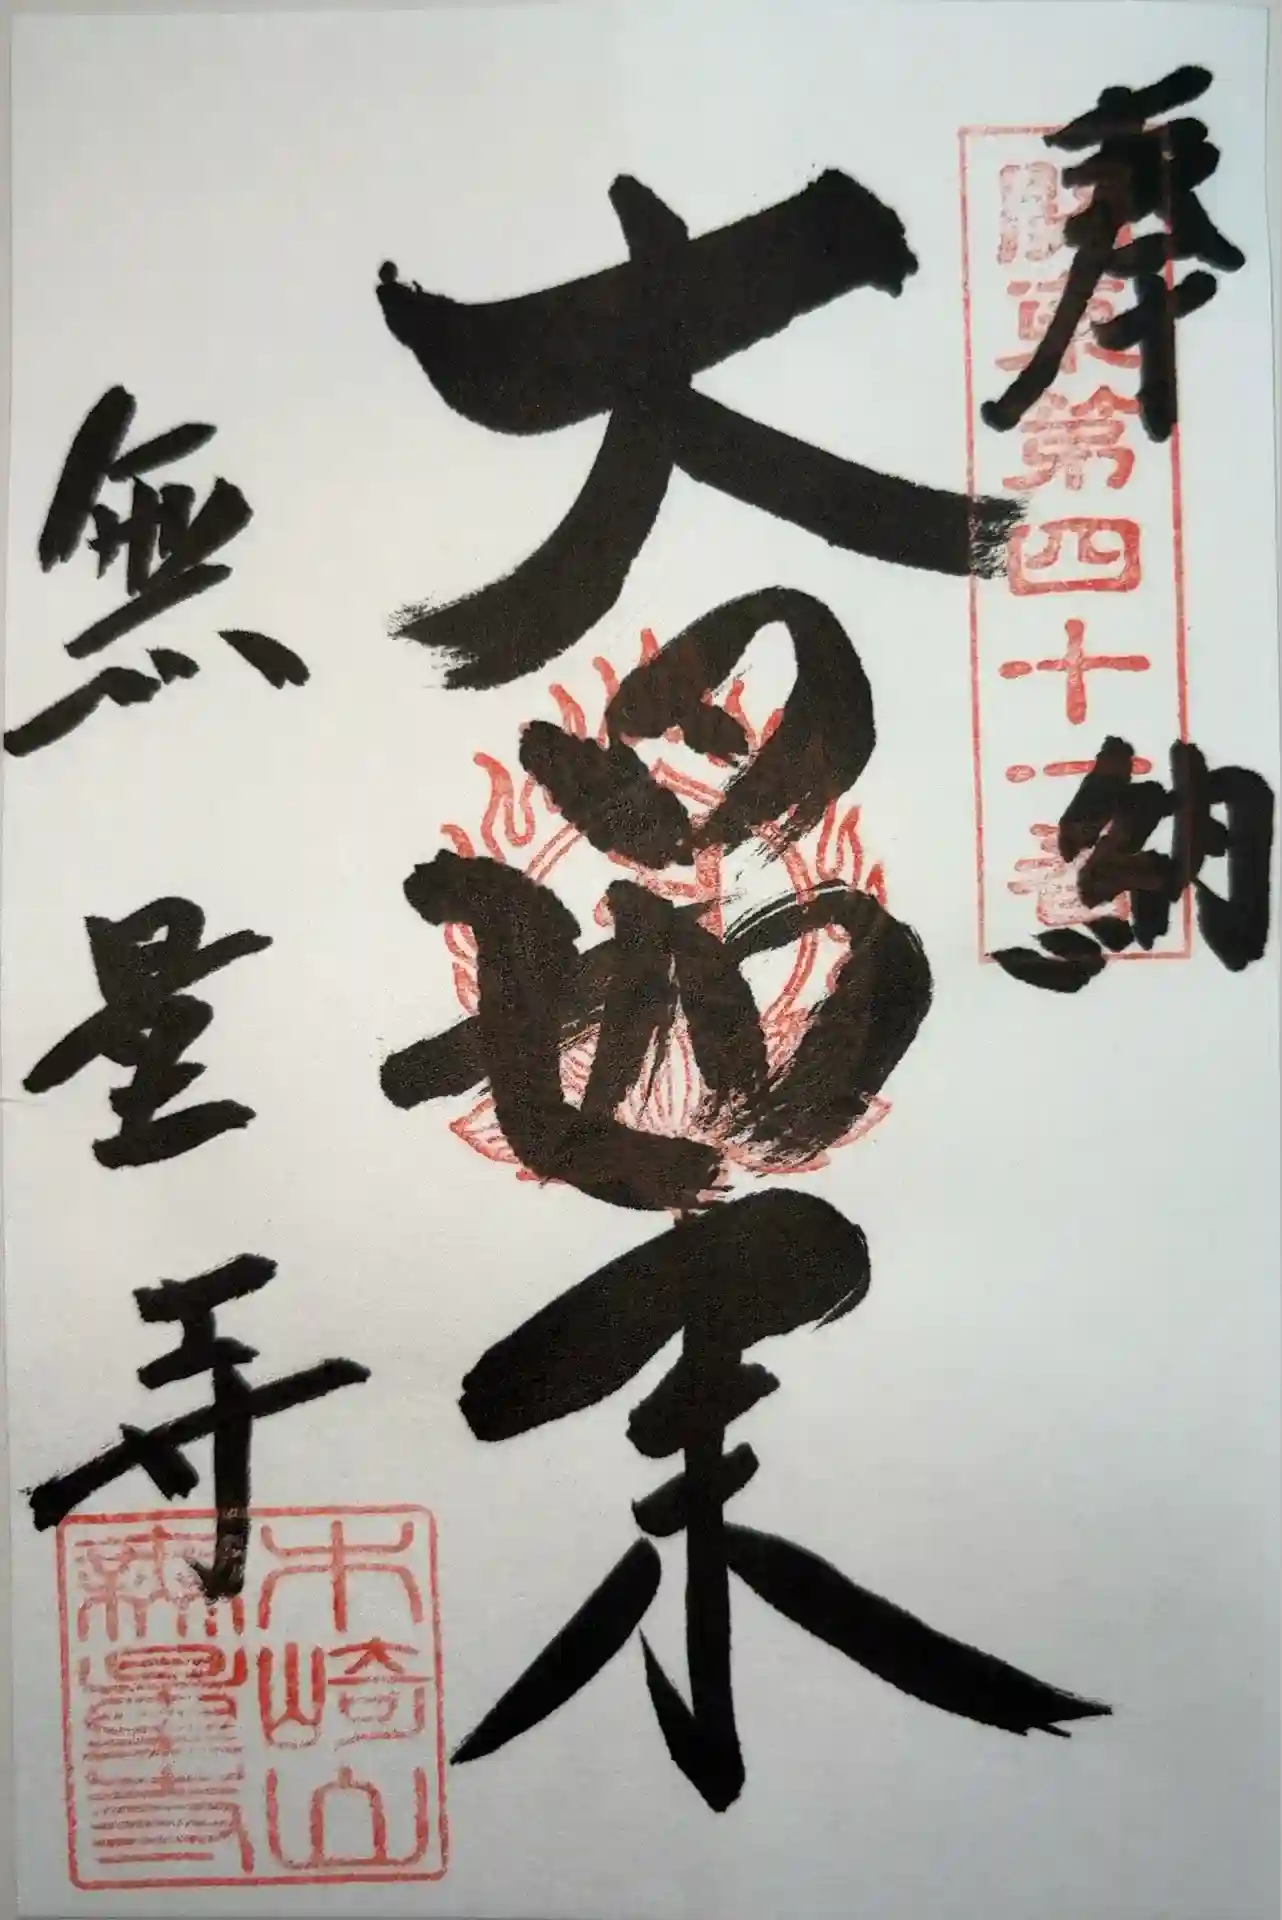 奉納
関東第四十一番
大日如来
無量寺
木崎山
無量寺